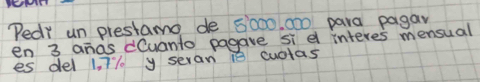 Pedi un prestamo de 5'000.000 para pagar
en 3 años ¿Cuanto pagare si el interes mensual
es del 1.7% y seran 18 cuotas